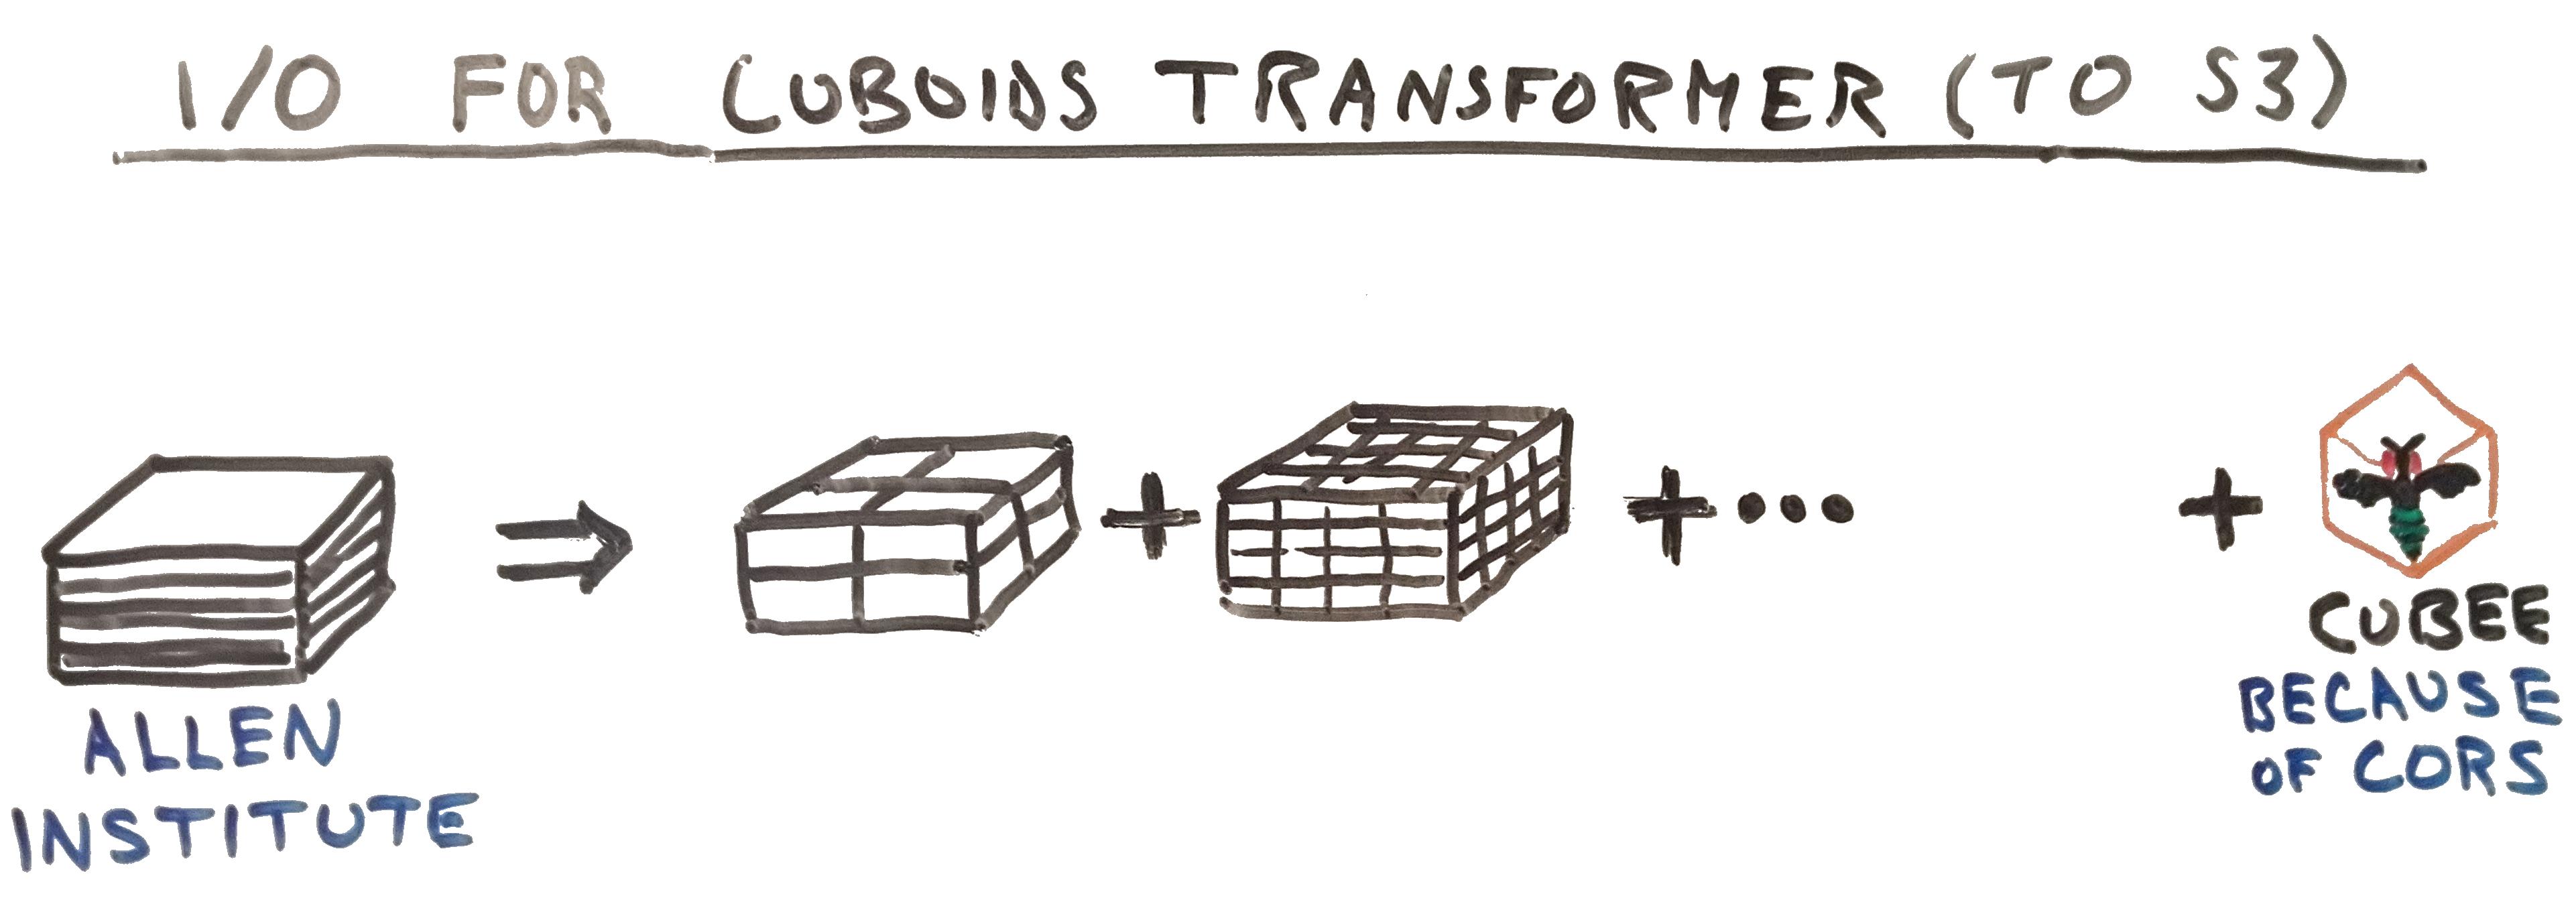 I/O FOR CUBOIDS TRANSFORMER (TO S3)
ALLEN
INSTITUTE
CUBEE
BECAUSE
OF CORS